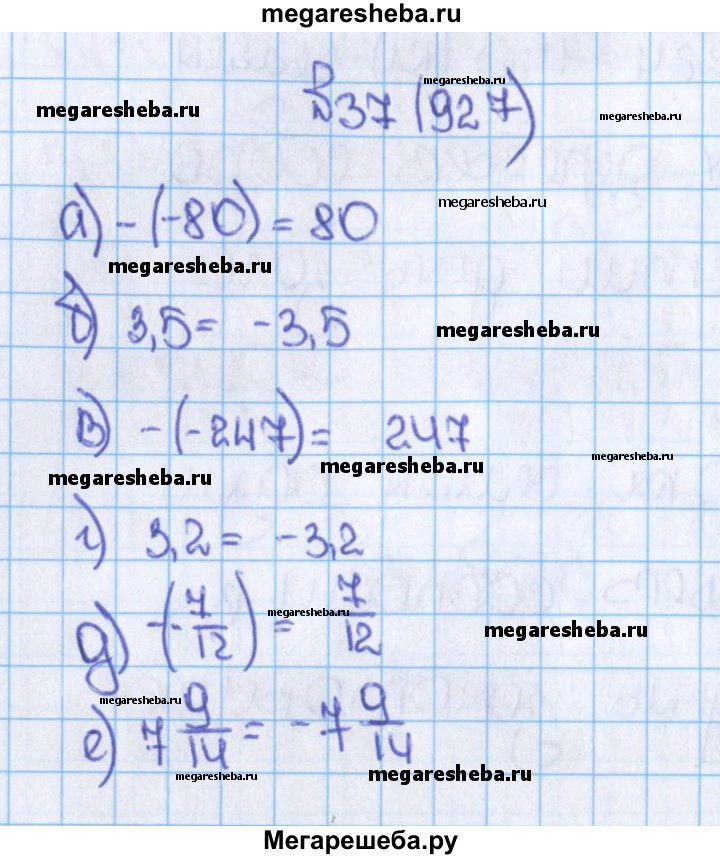 megaresheba.ru
№37 (927)
megaresheba.ru
megaresheba.ru
megaresheba.ru
а) -(-80) = 80
megaresheba.ru
megaresheba.ru
б) 3,5 = -3,5
megaresheba.ru
в) -(-247) = 247
megaresheba.ru
megaresheba.ru
megaresheba.ru
г) 3,2 = -3,2
д) -(-7/12) = 7/12
megaresheba.ru
megaresheba.ru
megaresheba.ru
е) 7 9/14 = -7 9/14
megaresheba.ru
megaresheba.ru
Мегарешеба.ру